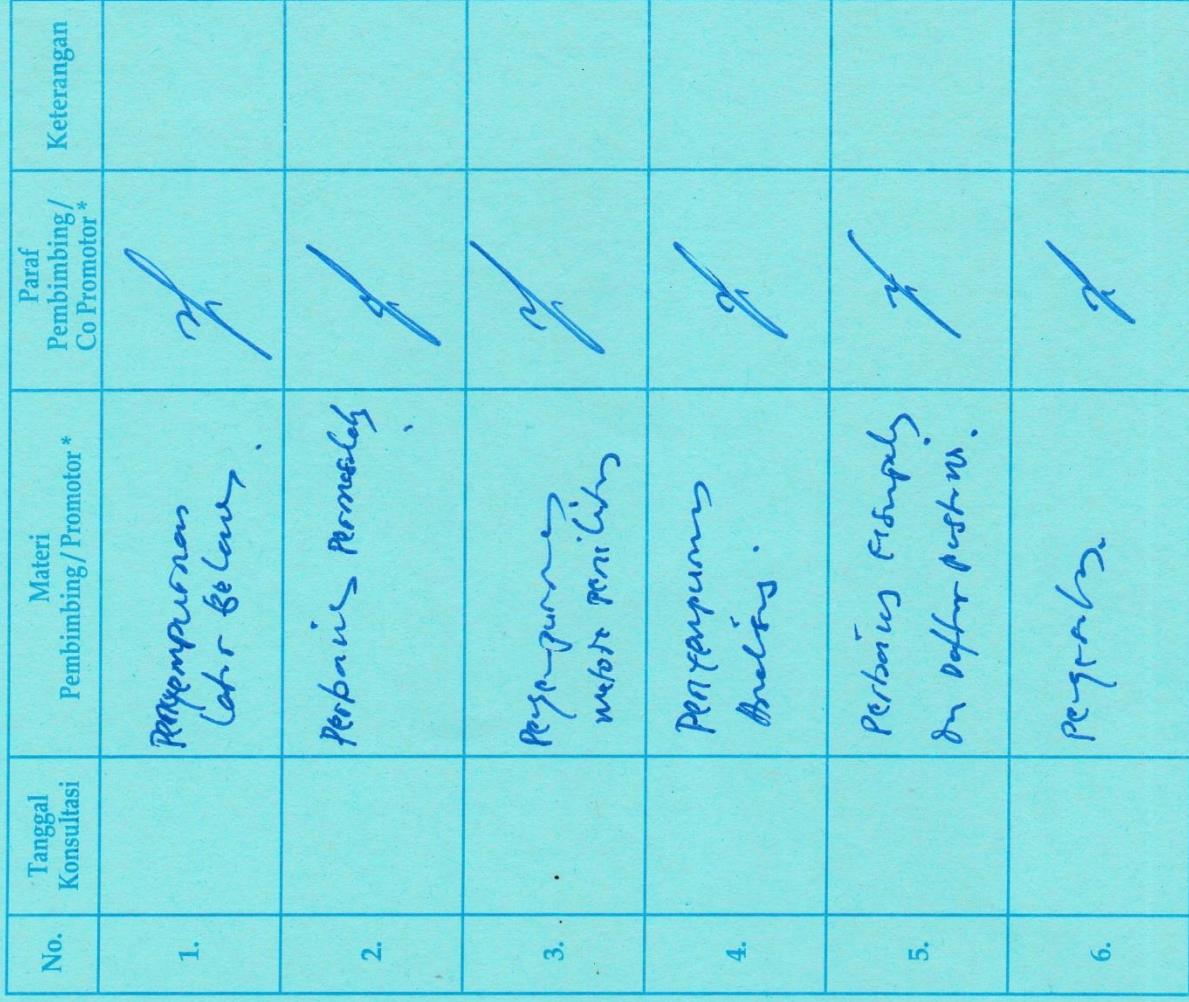 No.
Tanggal
Konsultasi
Materi
Pembimbing / Promotor *
Paraf
Pembimbing /
Co Promotor *
Keterangan
1.
Penyempurnaan
Latar Belakang
2.
Perbaikan Permasalahan
3.
Penyempurnaan
metode penelitian
4.
Penyempurnaan
Analisis.
5.
Perbaikan
dan Daftar pustaka.
6.